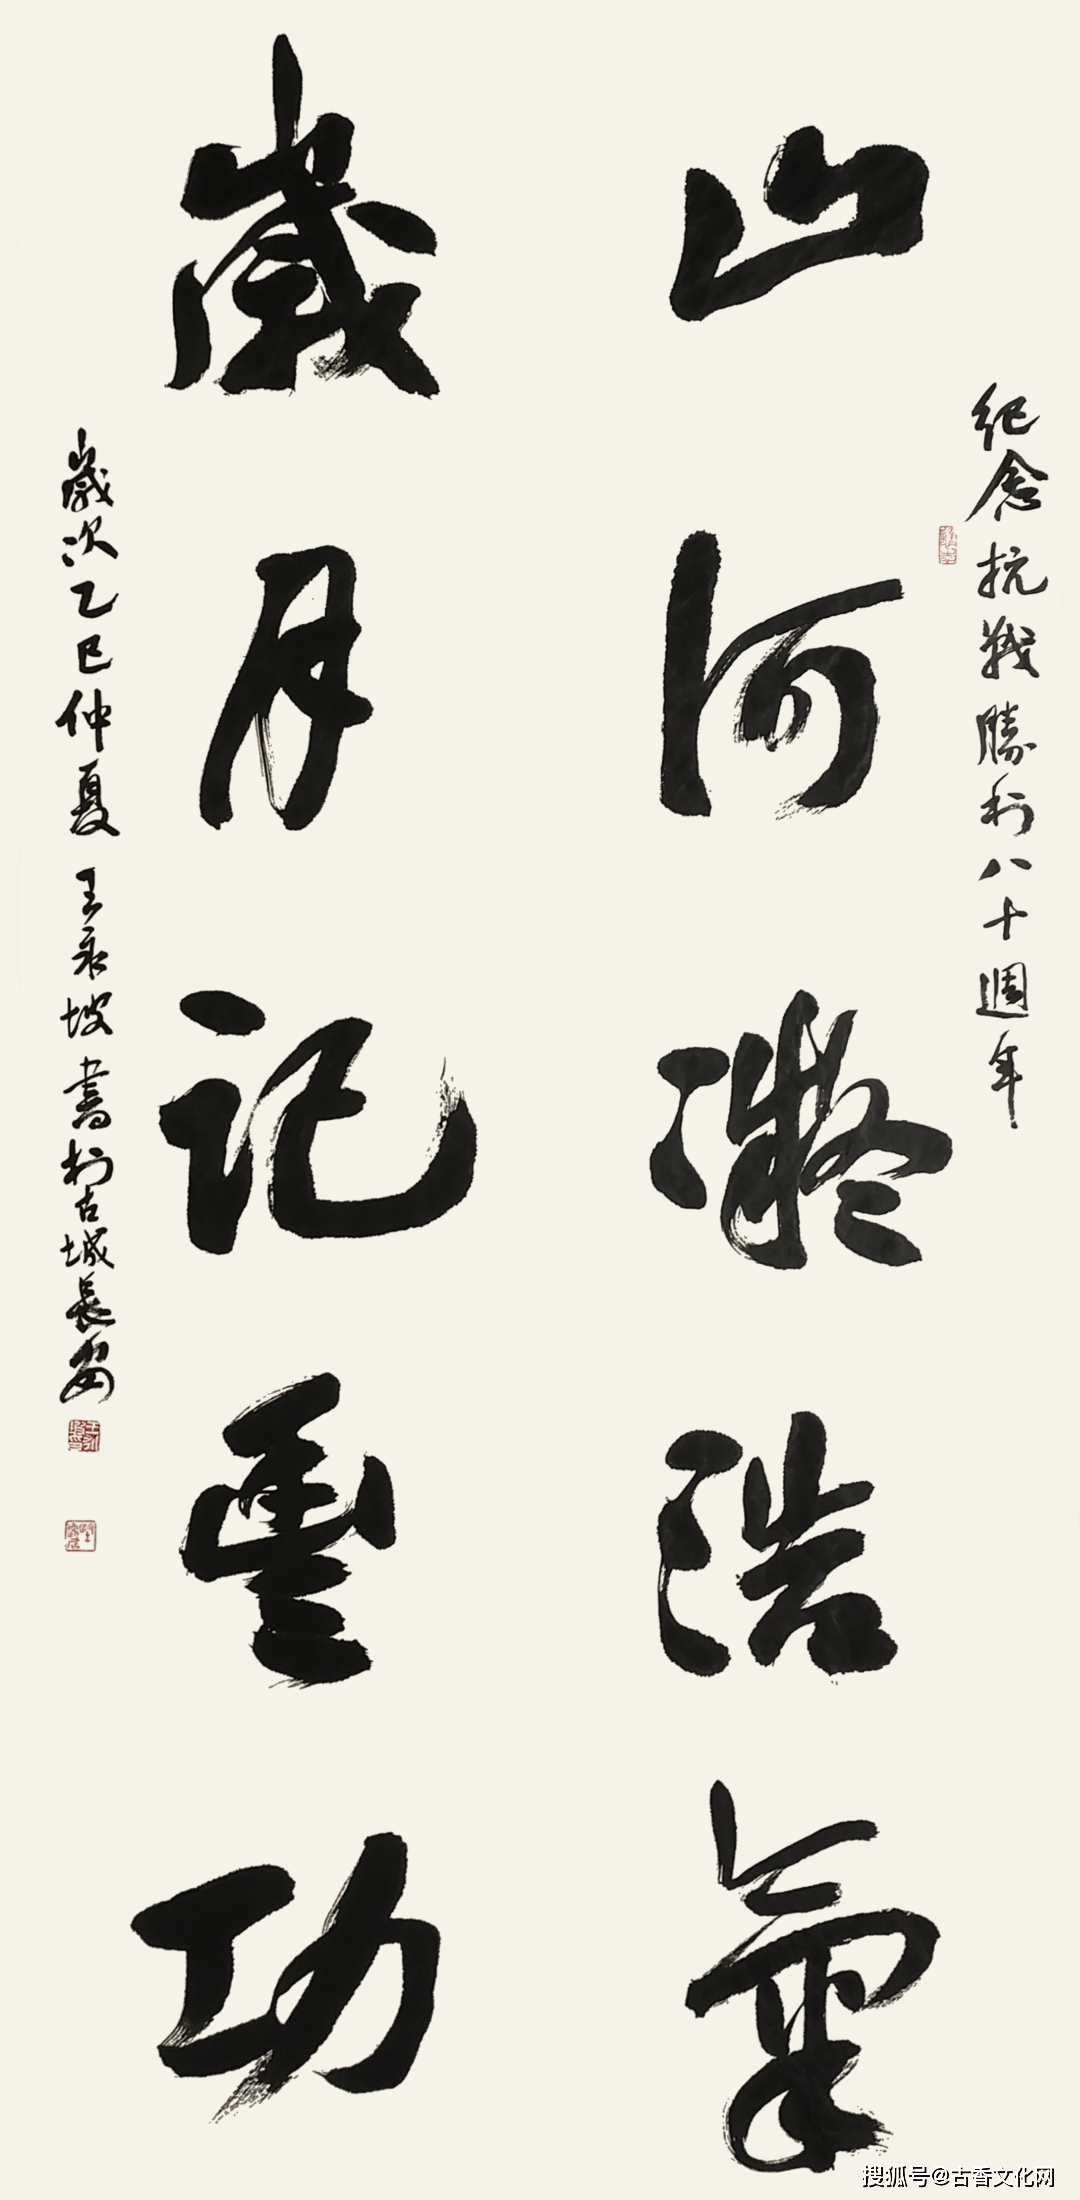 紀念抗戰勝利八十週年
山河凝浩氣
歲月記豐功
歲次乙巳仲夏 王永坡書於古城長安
搜狐号@古香文化网